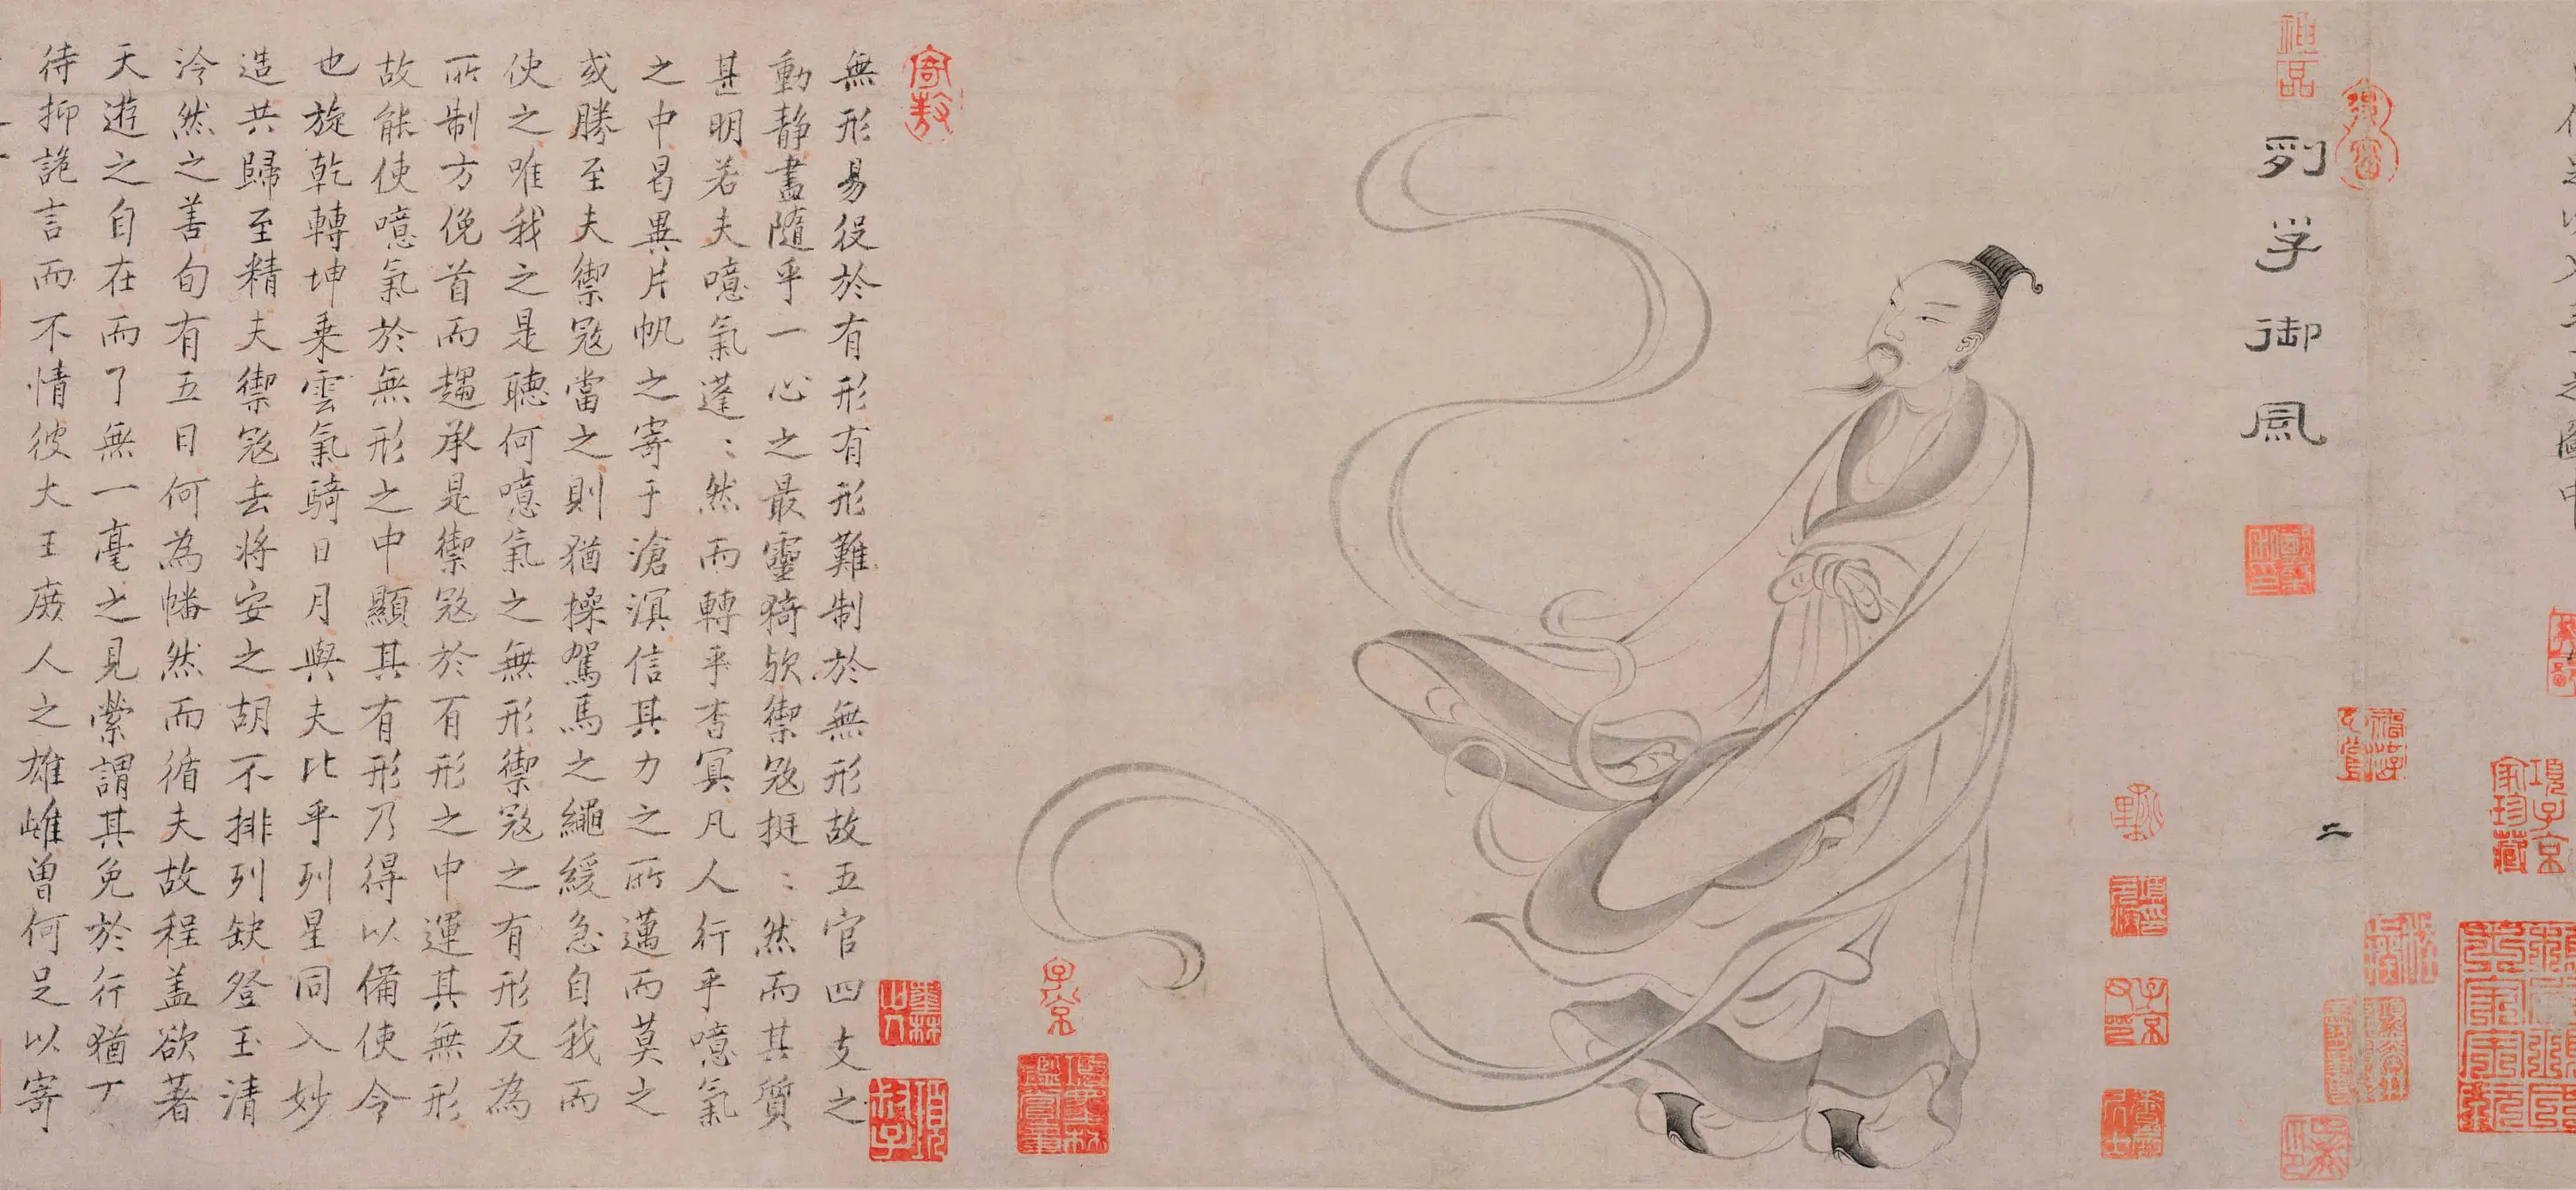 列子御風
二
無形易役於有形有形難制於無形故五官四支之
動静盡随乎一心之最靈猗欤禦寇挺〻然而其質
甚明若夫噫氣蓬〻然而轉乎杳冥凡人行乎噫氣
之中曷異片帆之寄于滄溟信其力之所邁而莫之
或勝至夫禦寇當之則猶操駕馬之繩緩急自我而
使之唯我之是聴何噫氣之無形禦寇之有形反為
所制方俛首而趨承是禦寇於有形之中運其無形
故能使噫氣於無形之中顯其有形乃得以備使令
也旋乾轉坤乗雲氣騎日月與夫比乎列星同入妙
造共歸至精夫禦寇去将安之胡不排列缺登玉清
泠然之善旬有五日何為幡然而循夫故程盖欲著
天遊之自在而了無一毫之見縈謂其免於行猶丁
待抑詭言而不情彼大王庻人之雄雌曽何足以寄
項子京家珍藏
子京
墨林山人